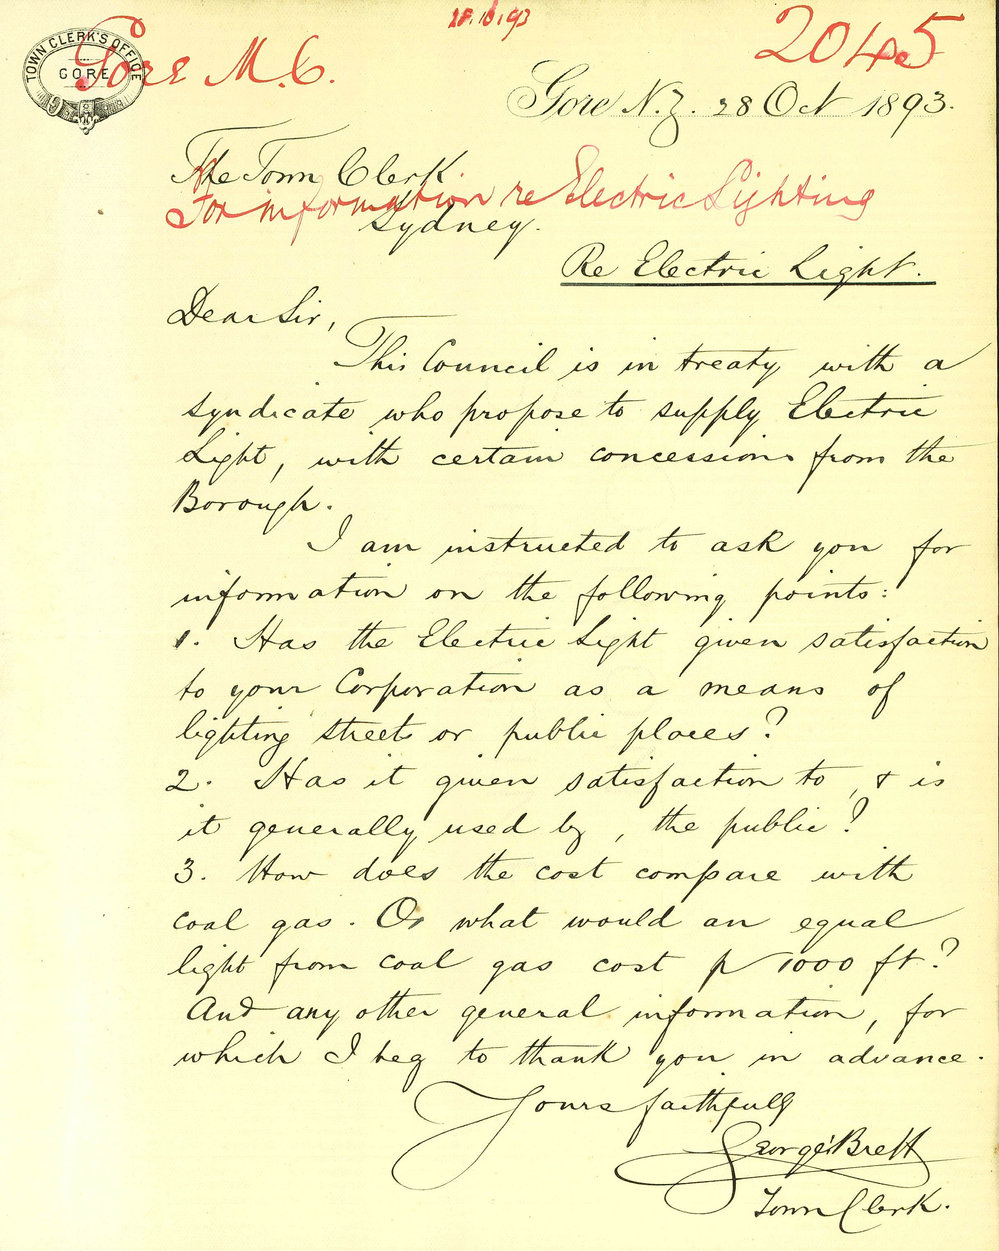 28.10.93
2045
TOWN CLERK'S OFFICE
GORE
Gore M.C.
Gore N.Z. 28 Oct 1893.
The Town Clerk
For information re Electric Lighting
Sydney.
Re Electric Light.
Dear Sir,
This Council is in treaty with a
syndicate who propose to supply Electric
Light, with certain concessions from the
Borough.
I am instructed to ask you for
information on the following points:
1. Has the Electric Light given satisfaction
to your Corporation as a means of
lighting streets or public places?
2. Has it given satisfaction to, & is
it generally used by, the public?
3. How does the cost compare with
coal gas. Or what would an equal
light from coal gas cost p 1000 ft?
And any other general information, for
which I beg to thank you in advance.
Yours faithfully
George Brett
Town Clerk.